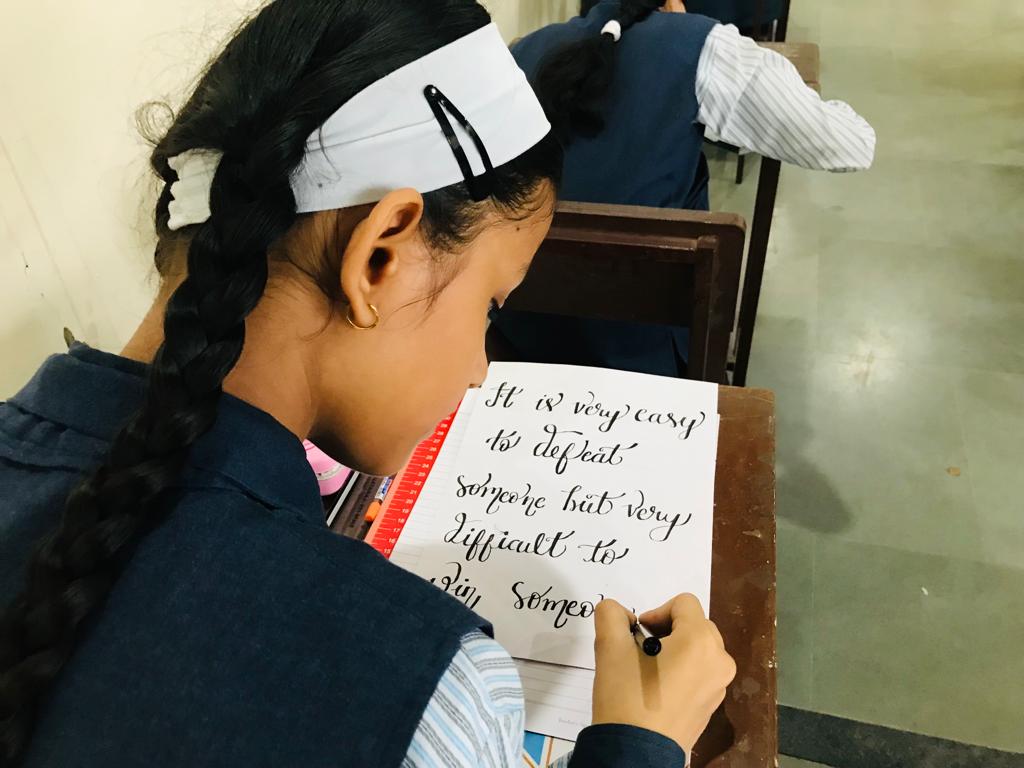 It is very easy
to defeat
someone but very
difficult to
win someo